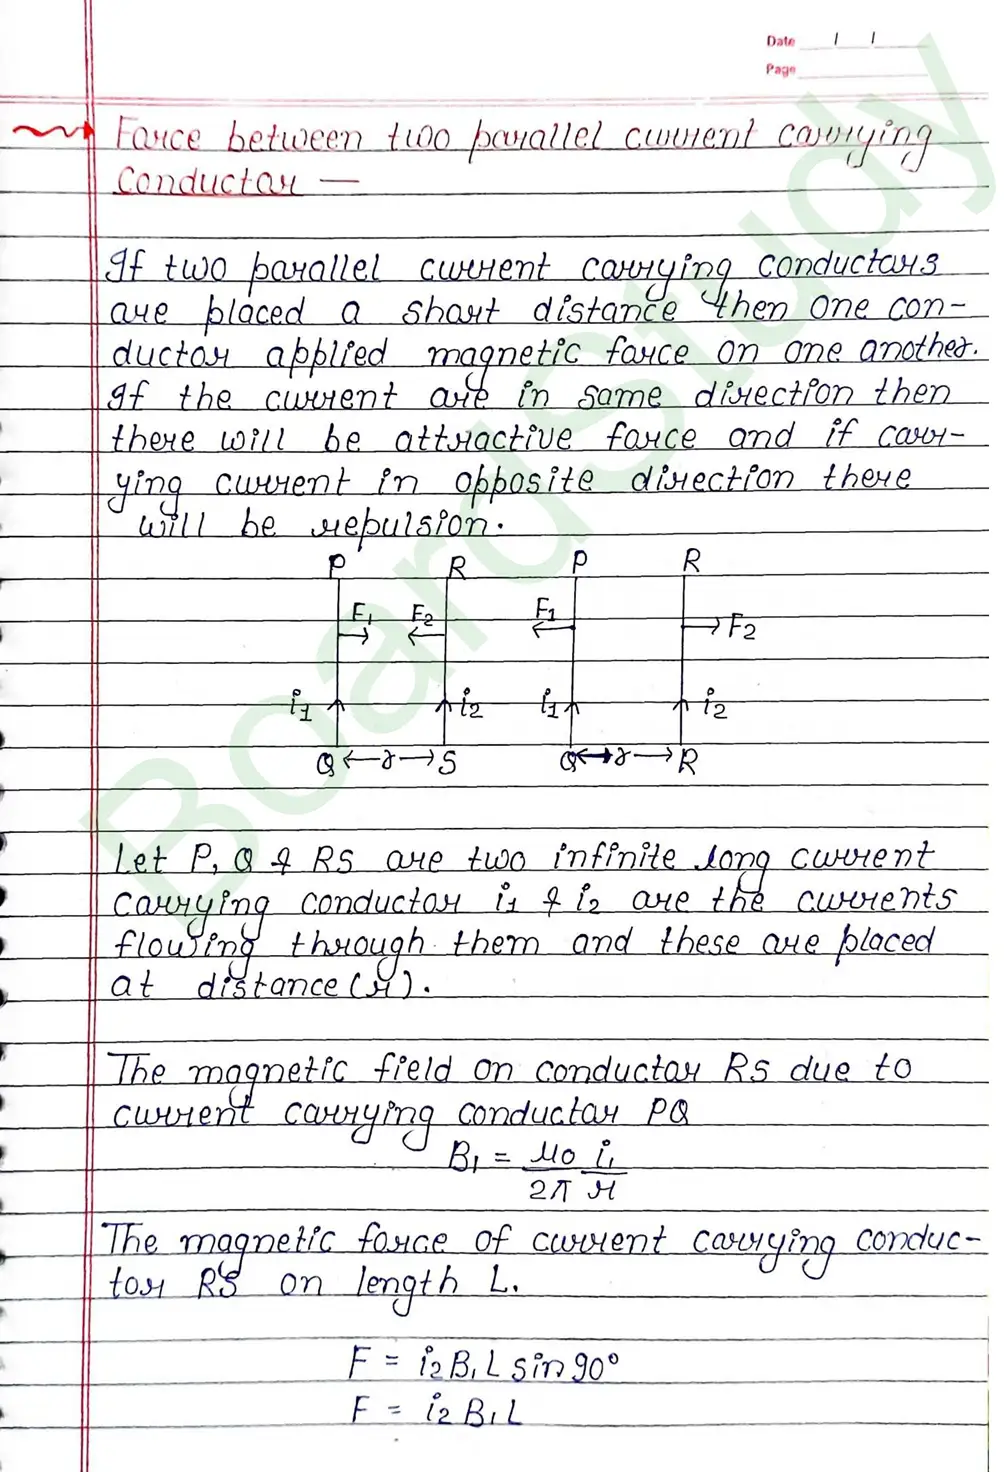 Date
Page
Force between two parallel current carrying
Conductor —
If two parallel current carrying conductors
are placed a short distance then one con-
ductor applied magnetic force on one another.
If the current are in same direction then
there will be attractive force and if carr-
ying current in opposite direction there
will be repulsion.
P R P R
F1 F2 F1 F2
i1 i2 i1 i2
Q ← r → S Q ↔ r → R
Let P, Q & RS are two infinite long current
carrying conductor i1 & i2 are the currents
flowing through them and these are placed
at distance (r).
The magnetic field on conductor RS due to
current carrying conductor PQ
B1 = μ0 i1 / 2π r
The magnetic force of current carrying conduc-
tor RS on length L.
F = i2 B1 L sin 90°
F = i2 B1 L
BoardStudy